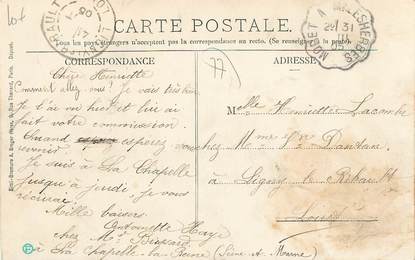 lot
CARTE POSTALE
Tous les pays étrangers n'acceptent pas la correspondance au recto. (Se renseigner
CORRESPONDANCE
ADRESSE
MORET A MALESHERBES
31
05
77
Chère Henriette
Comment allez vous! Je vais très bien
J'ai vu hier et lui ai
fait votre commission.
Quand espérez vous
revenir.
Je suis à La Chapelle
jusqu'à jeudi je vous
récrirai.
Mille baisers
Antoinette Haye
chez Mr
à La Chapelle-la-Reine (Seine et Marne)
Melle Henriette Lacombe
chez Mme Vve Dantan
à Ligny le Ribault
Loiret